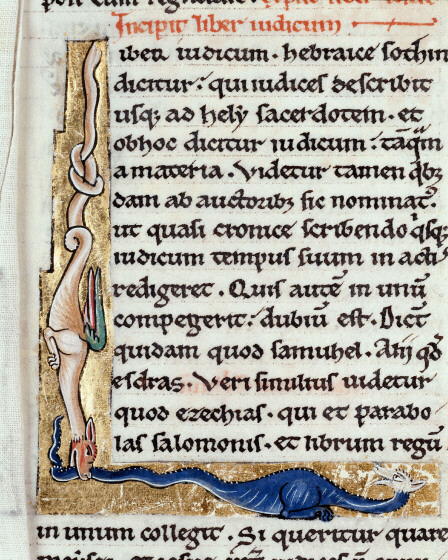 Incipit liber iudicum
iber iudicum. hebraice sothim
dicitur. qui iudices describit
usq; ad hely sacerdotem. et
obhoc dicitur iudicum. tāq̄m
a materia. Videtur tamen qͥbꝫ
dam ab auctoribꝫ sic nominat᷑.
ut quasi cronice scribendo qͥsq;
iudicum tempus suum in acti
redigeret. Quis autē in unū
compegerit. dubiū est. Dict̄
quidam quod samuhel. Alij qđ
esdras. Veri similius uidetur
quod ezechias. qui et parabo
las salomonis. et librum regū
in unum collegit. Si queritur quare